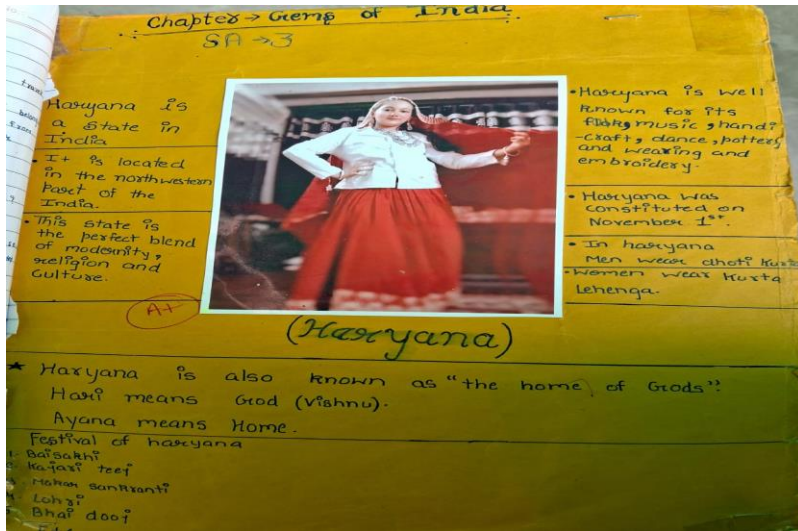 Chapter → Gems of India
SA → 3
Haryana is
a State in
India
• It is located
in the northwestern
Part of the
India.
• This state is
the perfect blend
of modernity,
religion and
Culture.
A+
• Haryana is well
known for its
folk, music, handi
-craft, dance, pottery
and wearing and
embroidery.
• Haryana was
constituted on
November 1st.
• In haryana
Men wear dhoti Kurta
• Women wear Kurta
Lehenga.
(Haryana)
* Haryana is also known as "the home of Gods".
Hari means God (Vishnu).
Ayana means Home.
Festival of haryana
Baisakhi
Kajari teej
Makar Sankranti
Lohri
Bhai dooj